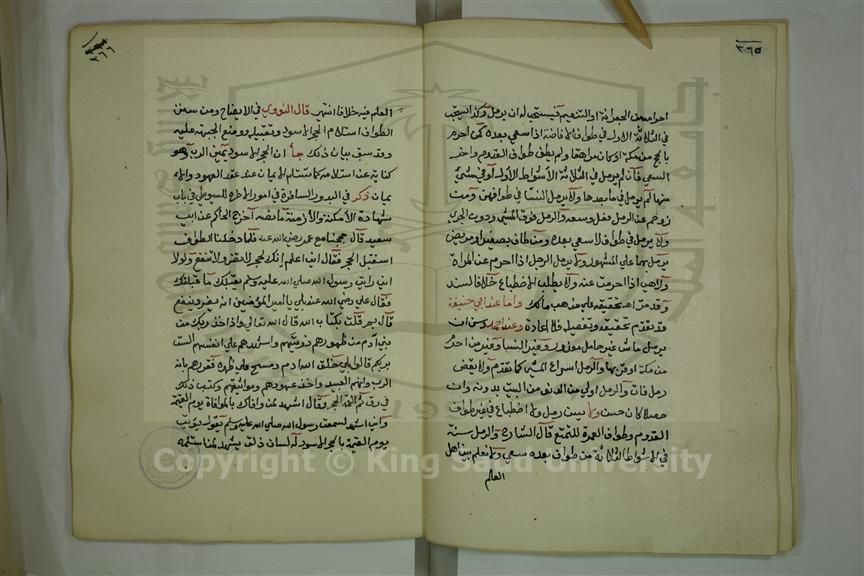 ٣٦٥
احرامه من الجعرانة او التنعيم فيستحب له ان يرمل وكذا يستحب
في الثلاثة الاول في طواف الافاضة اذا سعى بعده كمن احرم
بالحج من مكة او كان مراهقا ولم يطف طواف القدوم واخر
السعي فان لم يرمل في الثلاثة الاشواط الأول أو في شيء
منها لم يرمل في ما بعدها ولا يرمل النسا في طوافهن ومن
زوحم عن الرمل فعل وسعه والرمل فوق المشي ودون الجري
ولا يرمل في طواف لا سعي بعده ومن طاف بصغير او مريض
يرمل بهما على المشهور ولا يرمل الرجل اذا احرم عن المراة
ولا هي اذا احرمت عنه ولا يطلب الاضطباع خلافا لسند
وقد مر تحقيقه على مذهب مالك واما عند ابي حنيفة
فقد تقدم تحقيقه وتفصيل فلا اعادة وعند احمد وسن ان
يرمل ماش غير حامل معذور وغير النسا وغير من احرم
من مكة او قربها والرمل اسراع المشي كما تقدم ولا يقض
رمل فات والرمل اولى من الدنو من البيت بدونه وان
حصلا كان حسن ولا يسن رمل ولا اضطباع في غير طواف
القدوم وطواف العمرة للتمتع قال الشارح والرمل سنة
في الاشواط الثلاثة من طواف بعده سعي ولا نعلم بين اهل
العلم
٣٦٦
العلم فيه خلافا انتهى قال النووي في الايضاح ومن سنن
الطواف استلام الحجر الاسود وتقبيله ووضع الجبهة عليه
وقد سبق بيان ذلك جا ان الحجر الاسود يمين الرب وهو
كناية عن استلامه كما تستلم الايمان عند عقد العهود والا
يمان ذكر في البدور السافرة في امور الاخرة للسيوطي في باب
شهادة الامكنة والازمنة ما نصه أخرج الحاكم عن ابي
سعيد قال حججنا مع عمر رضي الله عنه فلما دخلنا الطواف
استقبل الحجر فقال اني اعلم انك لحجر لا تضر ولا تنفع ولولا
اني رايت رسول الله صلى الله عليه وسلم يقبلك ما قبلتك
فقال علي رضي الله عنه بلى يا امير المؤمنين انه يضر وينفع
قال بم قلت بكتاب الله قال الله تعالى واذ اخذ ربك من
بني آدم من ظهورهم ذريتهم واشهدهم على انفسهم الست
بربكم قالوا بلى خلق الله ادم ومسح على ظهره فقررهم بانه
الرب وانهم العبيد واخذ عهودهم ومواثيقهم وكتب ذلك
في رق ثم القمه الحجر وقال اشهد لمن وافاك بالموافاة يوم القيمة
واني اشهد لسمعت رسول الله صلى الله عليه وسلم يقول يؤتى
يوم القيمة بالحجر الاسود له لسان ذلق يشهد لمن استلمه
Copyright © King Saud University